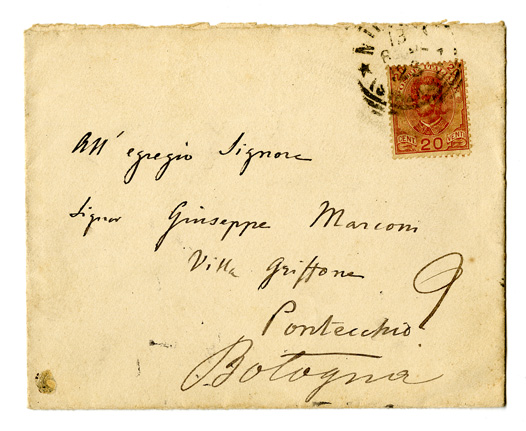 All' egregio Signore
Signor Giuseppe Marconi
Villa Griffone
Pontecchio
Bologna
9
CENT 20 CENTI